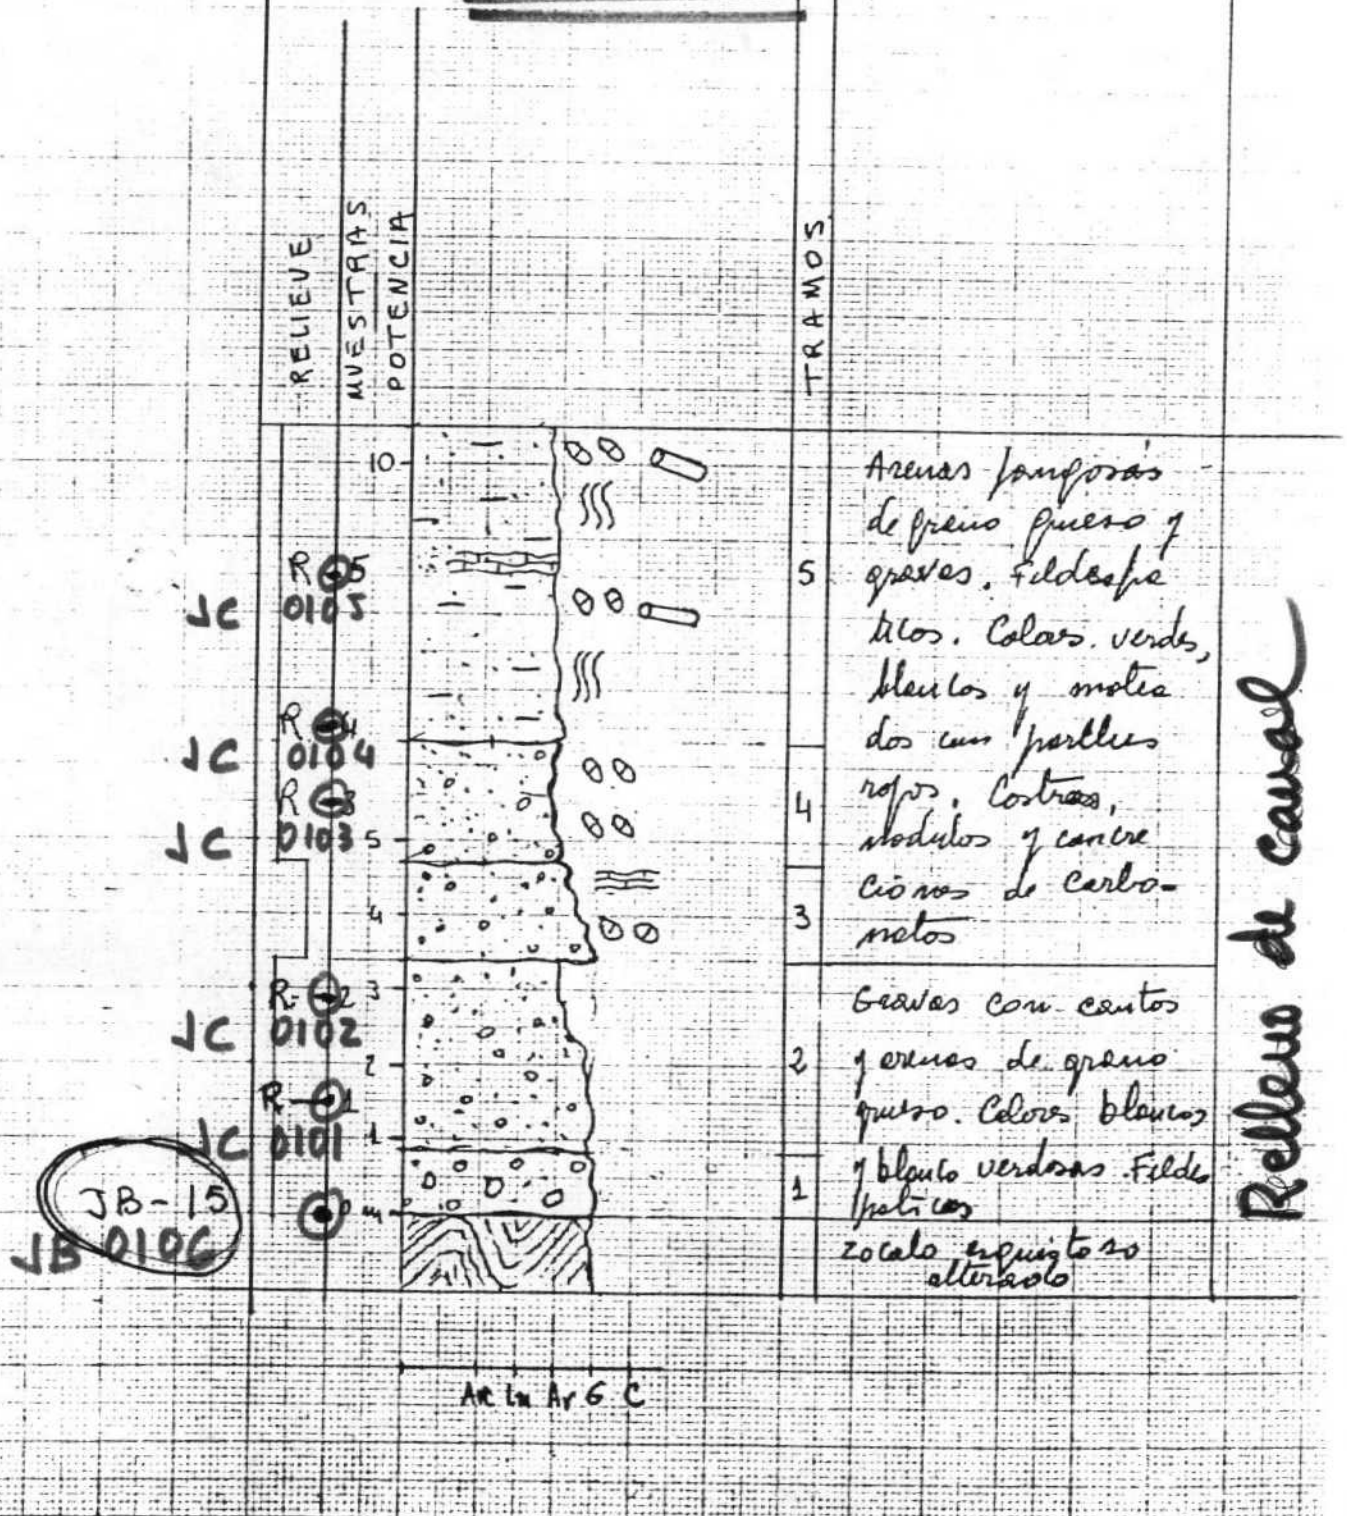 RELIEVE
MUESTRAS
POTENCIA
TRAMOS
10
5
4
3
2
1
0 m
R 5
JC 0105
R 4
JC 0104
R 3
JC 0103
R- 2
JC 0102
R- 1
JC 0101
JB-15
JB 0106
5
4
3
2
1
Arenas fangosas
de grano grueso y
gravas. Feldespa
ticos. Colores verdes,
blancos y motea
dos con parches
rojos. Costras,
nodulos y concre
ciones de Carbo-
natos
Gravas con cantos
y arenas de grano
grueso. Colores blancos
y blanco verdosos Feldes
paticos
zocalo esquistoso
alterado
Relleno de canal
Ar G C